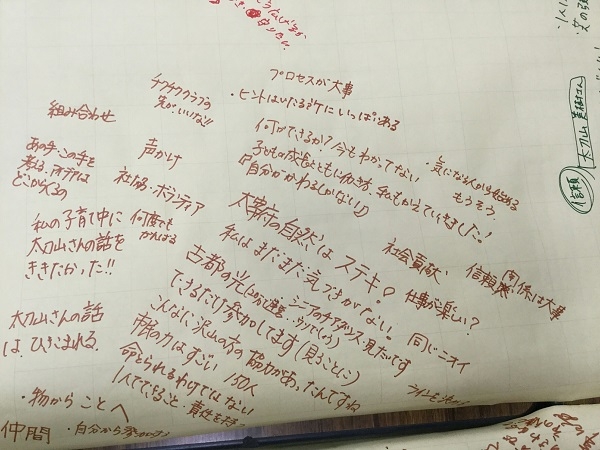 プロセスが大事
・ヒントはいたる所にいっぱいある
何ができるか?今もわかってない
子どもの成長とともに働き方、私もかえていきました!
「自分がかわるしかない!」
・気になる人から始める
もうそう
チクチククラブの
先が、いいな!!
組み合わせ
あの手この手を
考える、アイデアは
どこからくるの
声かけ
社協・ボランティア
何度でも
がんばる
私の子育て中に
太刀山さんの話を
ききたかった!!
太宰府の自然はステキ!
私はまだまだ気づきがない。
社会貢献
仕事が楽しい?
信頼
関係は大事
同じニオイ
古都の光
シニアのチアダンス・見たいです
できるだけ参加してます(見ることに)
こんなに沢山の方の協力があったんですね
市民の力はすごい 150人
命とられるわけではない
1人でできること・責任を持つ
太刀山さんの話
は、ひきこまれる。
・物から ことへ
仲間
・自分から
信頼
太刀山美樹さん